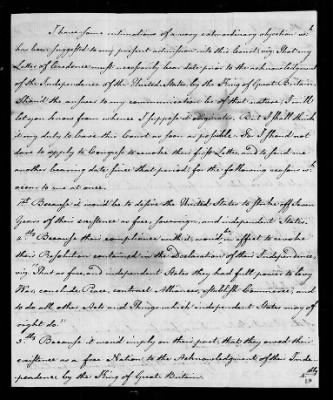 I have some intimations of a very extraordinary objection wh
has been suggested to my present admission into this Court, viz. That my
Letter of Credence must necessarily bear date prior to the acknowledgment
of the Independence of the United States, by the King of Great Britain.
Should the answer to my communication be of that nature, I will
let you know from whence I suppose it originates. But I shall think
it my duty to leave this Court as soon as possible. For I should not
dare to apply to Congress to revoke their first Letter, and to send me
another bearing date since that period, for the following reasons wh
occur to me at once.
1st Because it would be to desire the United States to strike off seven
Years of their existence as free, sovereign, and independent States.
2dly Because their compliance with it, would in effect to revoke
their Resolution contained in the Declaration of their Independence,
viz. "That as free and independent States they had full power to levy
War, conclude Peace, contract Alliances, establish Commerce, and
to do all other Acts and Things which independent States may of
right do."
3dly Because it would imply on their part, that they owed their
existence as a free Nation to the Acknowledgment of their Inde-
pendence by the King of Great Britain.